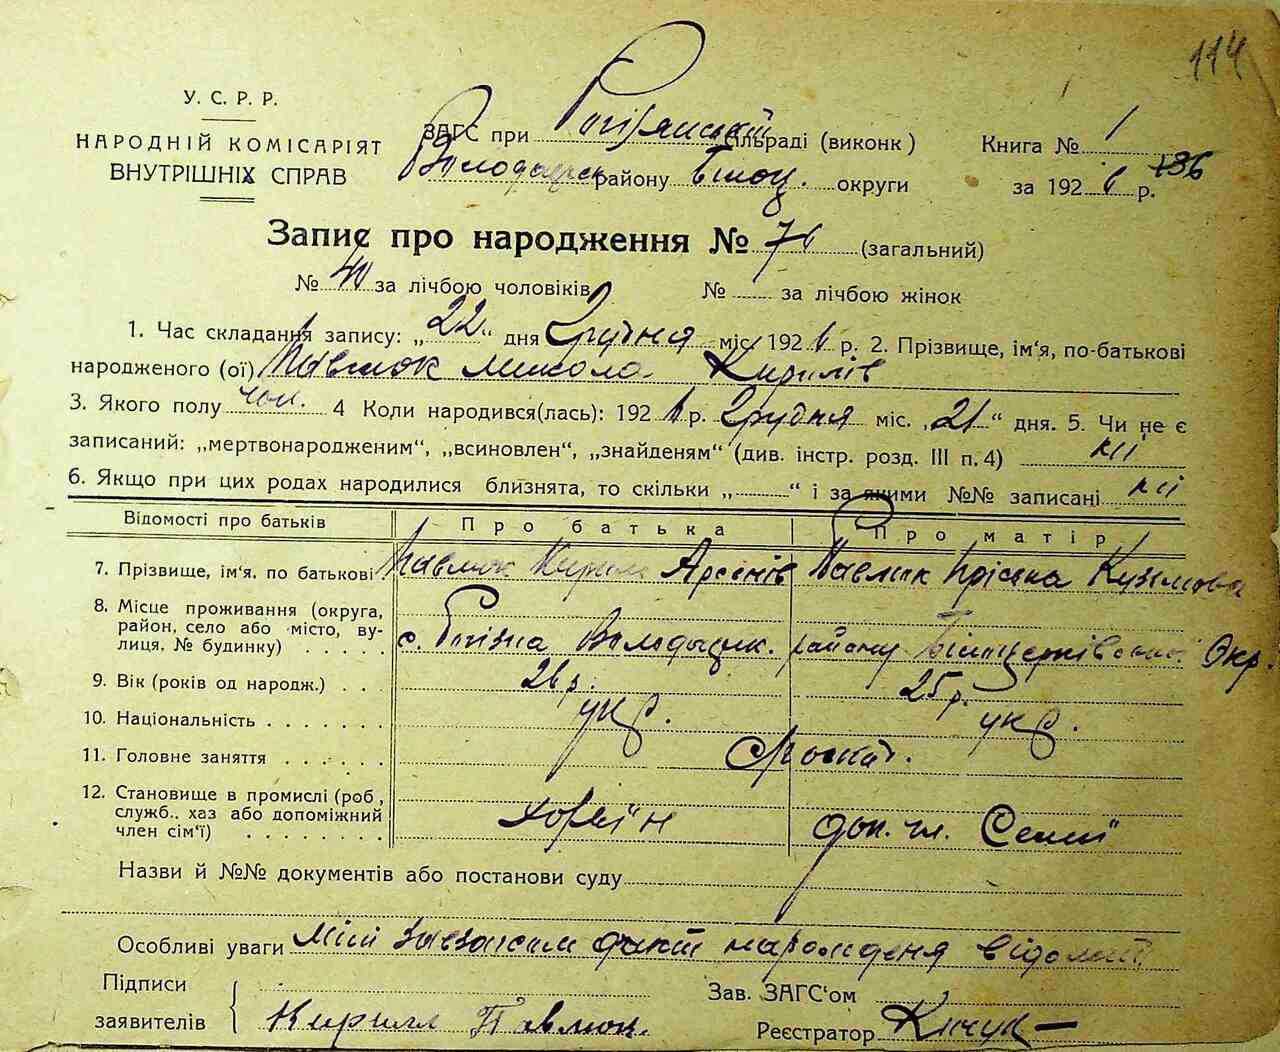 114
У. С. Р. Р.
НАРОДНІЙ КОМІСАРІЯТ
ВНУТРІШНІХ СПРАВ
ЗАГС при Рогізянській сільраді (виконк)
Володарськ району Білоц. округи
Книга № 1
за 1926 р. 136
Запис про народження № 76 (загальний)
№ 40 за лічбою чоловіків № за лічбою жінок
1. Час складання запису: „22“ дня Грудня міс. 1926 р. 2. Прізвище, ім‘я, по-батькові
народженого (ої) Павлюк Микола Кирилів
3. Якого полу чол. 4 Коли народився(лась): 1926 р. Грудня міс. „21“ дня. 5. Чи не є
записаний: „мертвонародженим“, „всиновлен“, „знайденям“ (див. інстр. розд. III п. 4) ні
6. Якщо при цих родах народилися близнята, то скільки „ “ і за якими №№ записані ні
Відомості про батьків Про батька Про матір
7. Прізвище, ім‘я. по батькові Павлюк Кирило Арсенів Павлюк Кузьмова
8. Місце проживання (округа,
район, село або місто, ву-
лиця. № будинку) с. Рогізна Володарськ. району Білоцерківської Окр.
9. Вік (років од народж.) 26 р. 25 р.
10. Національність укр. укр.
11. Головне заняття
12. Становище в промислі (роб,
служб.. хаз або допоміжний
член сім‘ї) хозяїн доп. чл. Семії
Назви й №№ документів або постанови суду
Особливі уваги Мені факт народженя відомий
Підписи
заявителів Кирилл Павлюк.
Зав. ЗАГС‘ом
Реєстратор